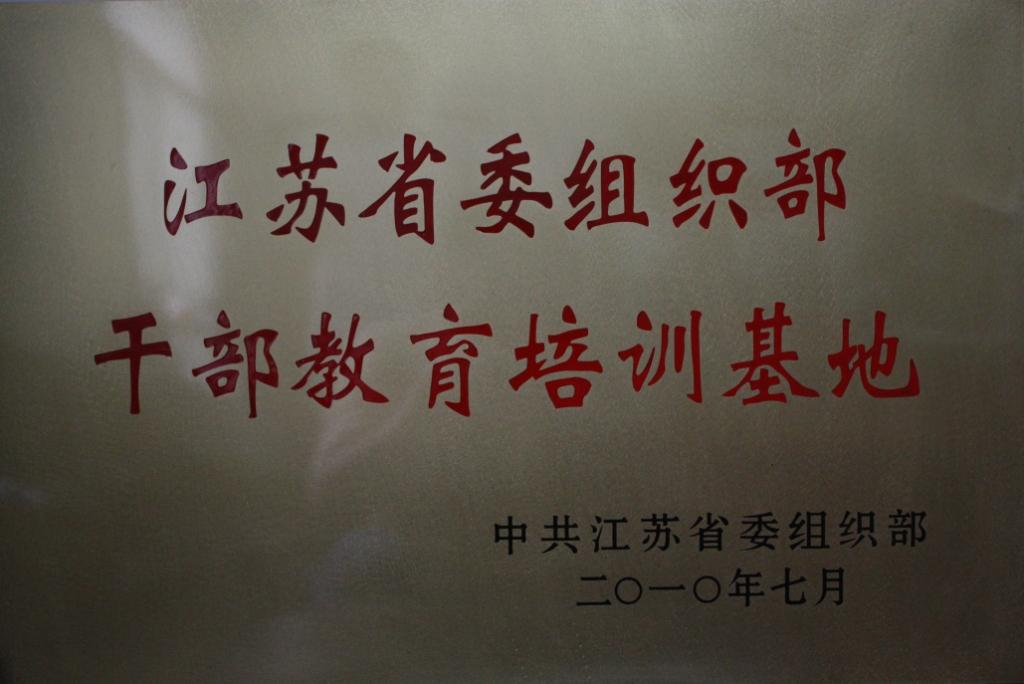 江苏省委组织部
干部教育培训基地
中共江苏省委组织部
二〇一〇年七月